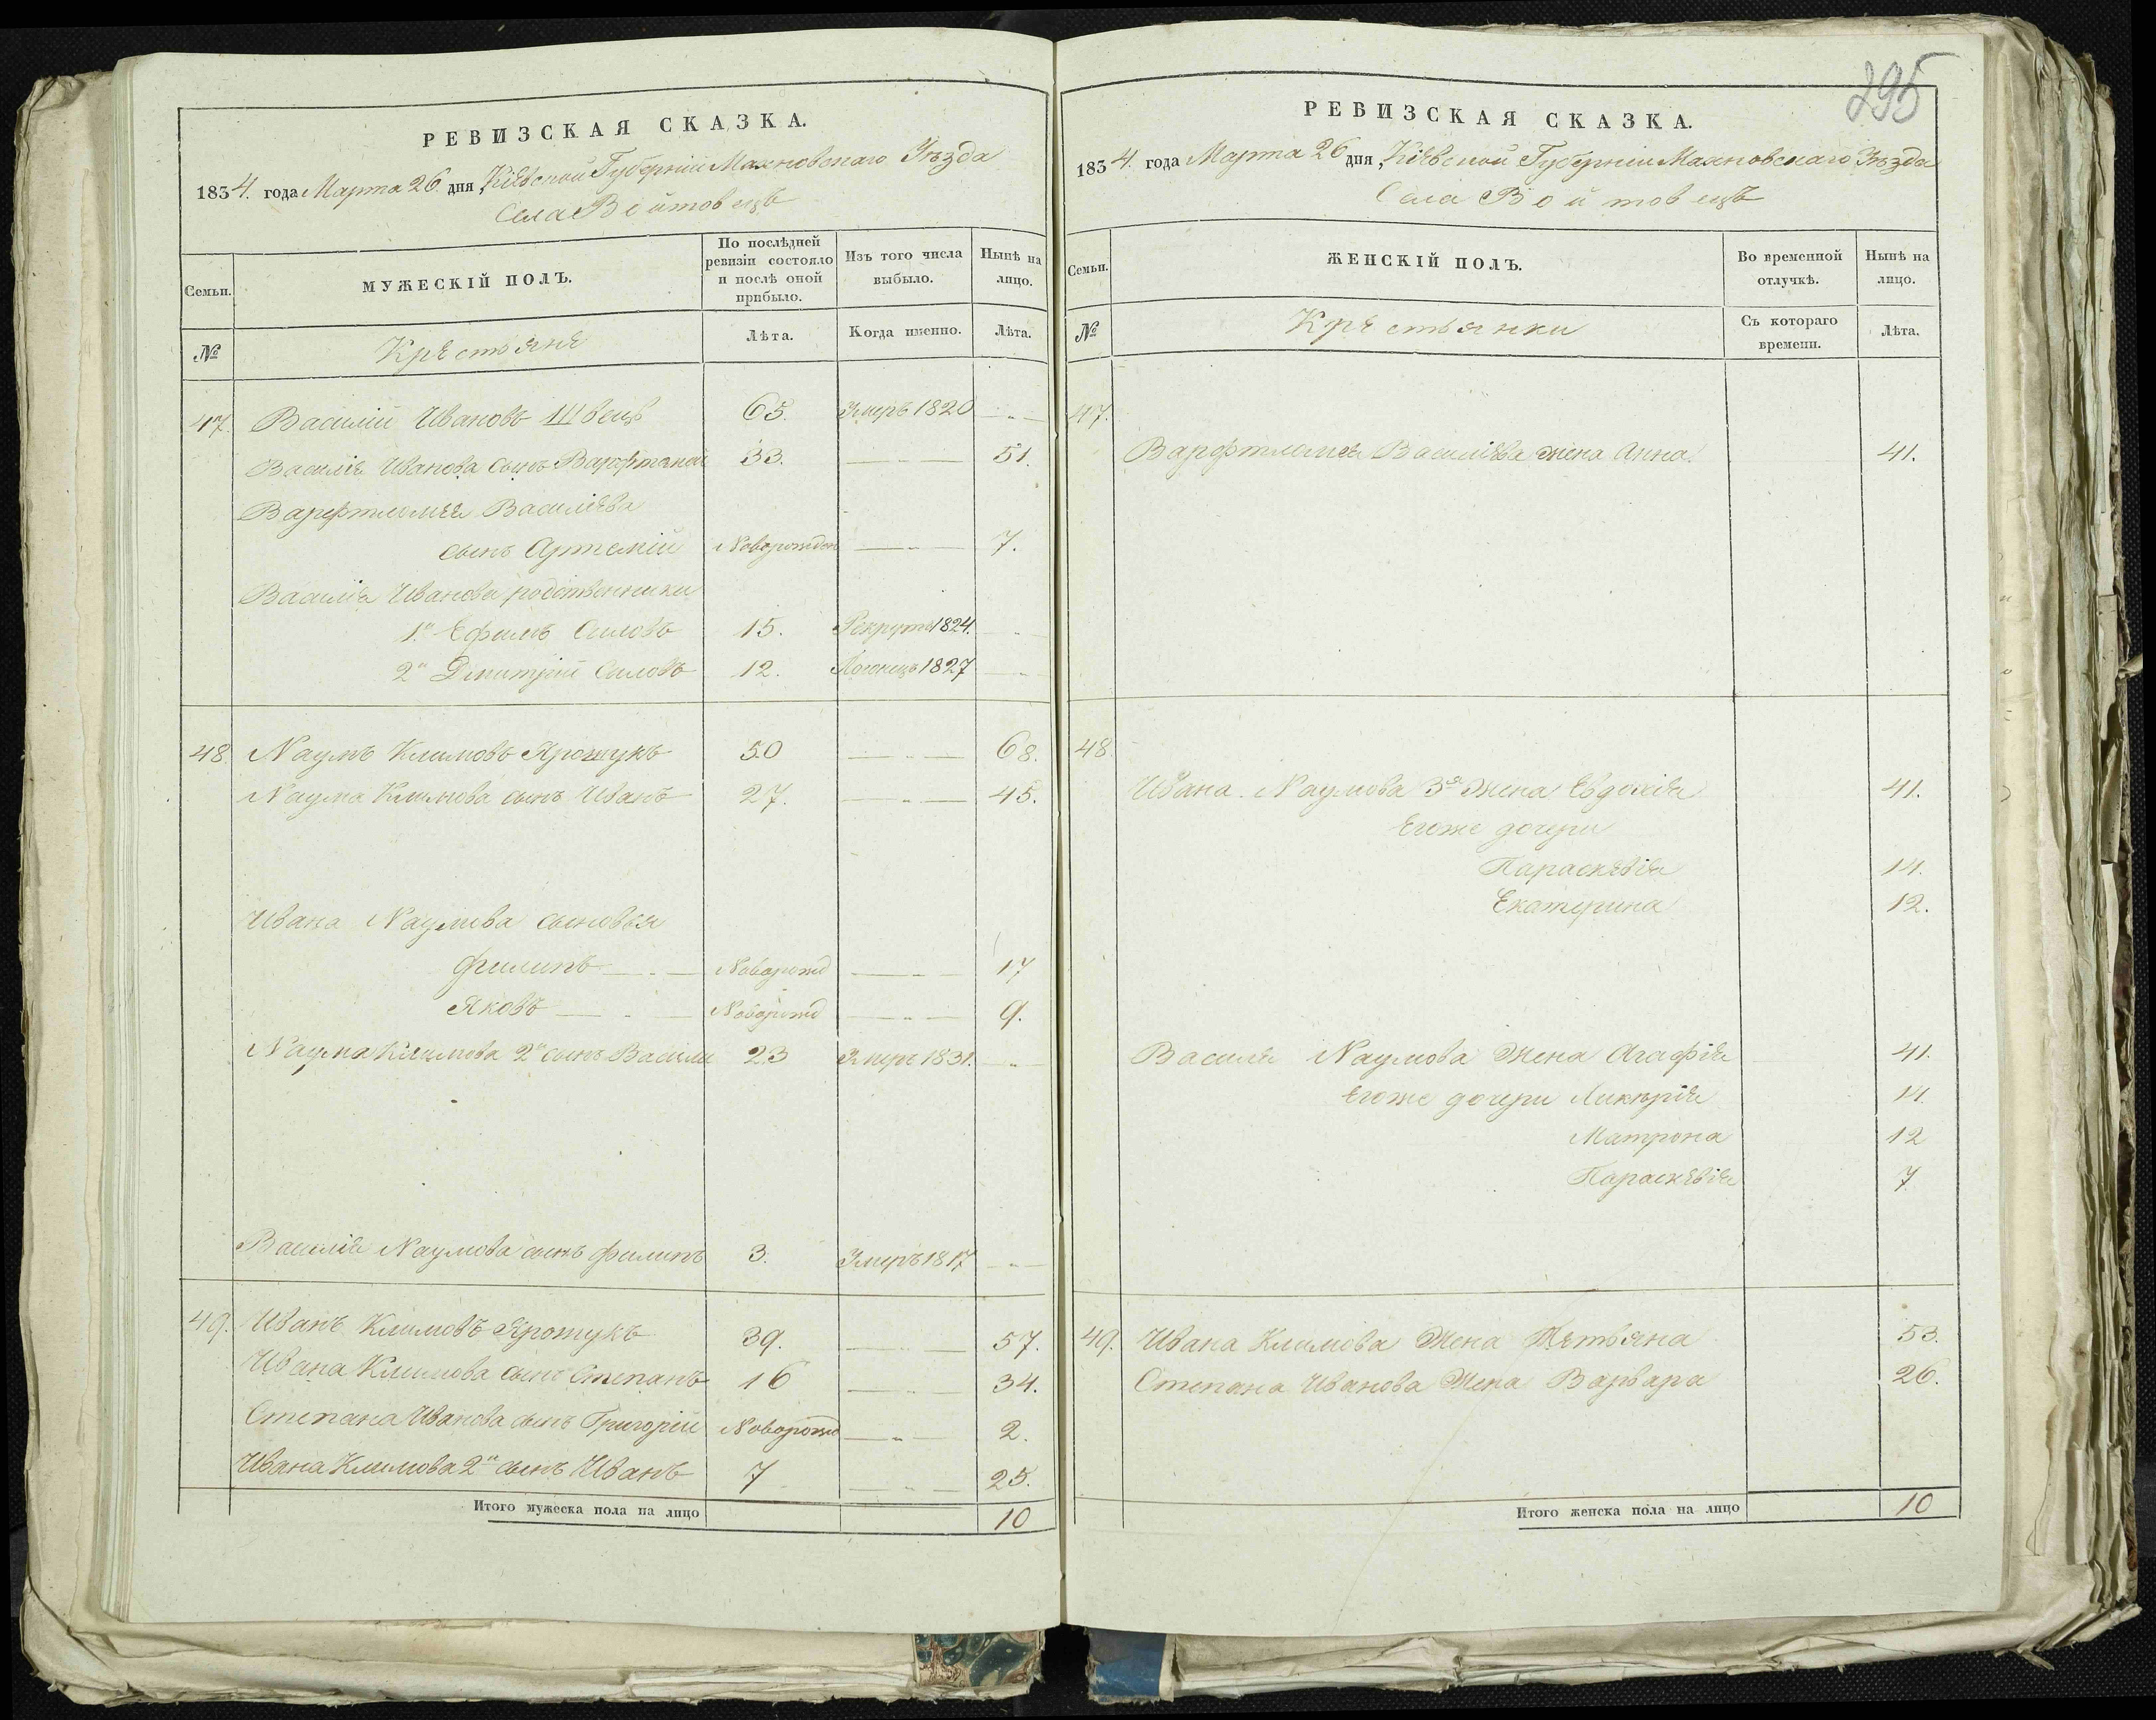 РЕВИЗСКАЯ СКАЗКА.
1834. года Марта 26. дня, Кіевской Губерніи Махновскаго Уѣзда
Села Войтовецъ
Семьи.
МУЖЕСКІЙ ПОЛЪ.
По послѣдней ревизіи состояло и послѣ оной прибыло.
Изъ того числа выбыло.
Нынѣ на лицо.
№
Крестьяне
Лѣта.
Когда именно.
Лѣта.
47. Василій Ивановъ Швецъ 65. Умеръ 1820
Василія Иванова сынъ 33. 51.
Варфтиломея Василіева
сынъ Артемій Новорожден 7.
Василія Иванова родственники
1й Ефимъ 15. Рекрутъ 1824.
2й Дмитрій 12. 1827
48. Наумъ Климовъ Ярошукъ 50 68.
Наума Климова сынъ Иванъ 27. 45.
Ивана Наумова сыновья
Филипъ Новорожд 17
Яковъ Новорожд 9.
Наума Климова 2й сынъ Василій 23 Умеръ 1831.
Василія Наумова сынъ Филипъ 3. Умеръ 1817
49. Иванъ Климовъ Ярошукъ 39. 57.
Ивана Климова сынъ Степанъ 16 34.
Степана Иванова сынъ Григорій Новорожд 2.
Ивана Климова 2й сынъ Иванъ 7 25.
Итого мужеска пола на лицо 10
295
РЕВИЗСКАЯ СКАЗКА.
1834. года Марта 26 дня, Кіевской Губерніи Махновскаго Уѣзда
Села Войтовецъ
Семьи.
ЖЕНСКІЙ ПОЛЪ.
Во временной отлучкѣ.
Нынѣ на лицо.
№
Крестьянки
Съ котораго времени.
Лѣта.
47.
Варфтиломея Василіева жена Анна. 41.
48.
Ивана Наумова 3я жена Евдокія 41.
Егоже дочери
Параскевія 14.
Екатерина 12.
Василія Наумова жена Агафія 41.
Егоже дочери Ликерія 14.
Матрона 12
Параскевія 7
49. Ивана Климова жена Тетьяна 53.
Степана Иванова жена Варвара 26.
Итого женска пола на лицо 10